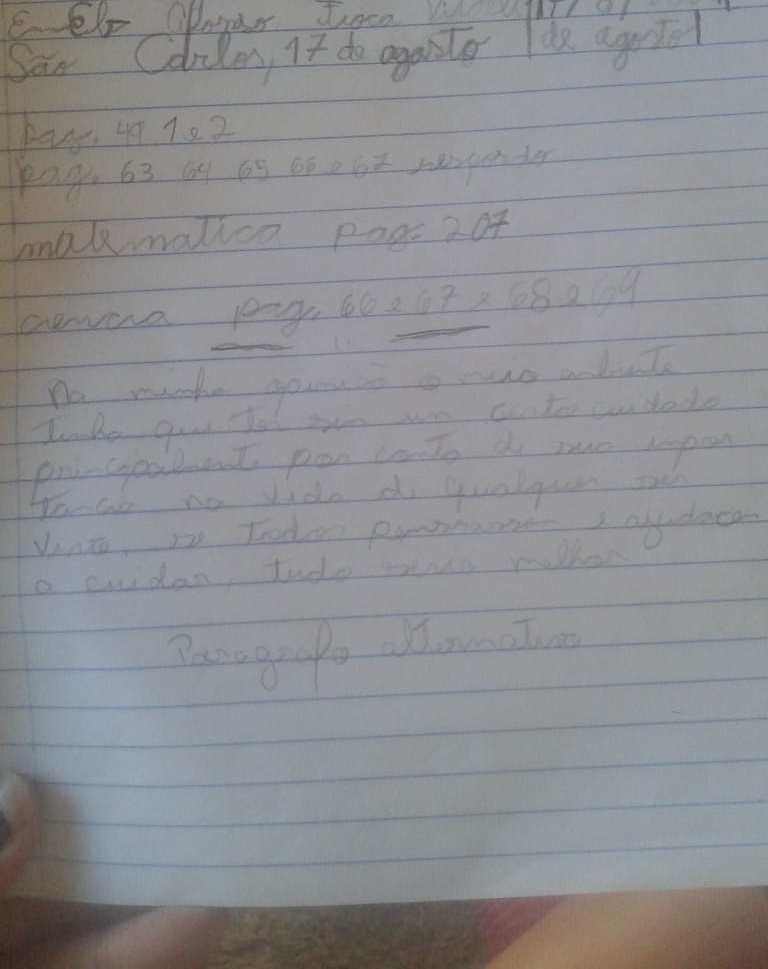 São Carlos, 17 de agosto | de agosto |
pag. 49 1 e 2
pag. 63 64 65 66 e 67 responder
matematica pag. 207
ciencia pag. 66 e 67 e 68 e 69
Na minha opinião o meio ambiente
tinha que ter sim um certo cuidado
principalmente por conta de sua impor
tancia na vida de qualquer ser
vivo, se todos pensassem e ajudacem
a cuidar, tudo seria melhor
Paragrafo alternativo